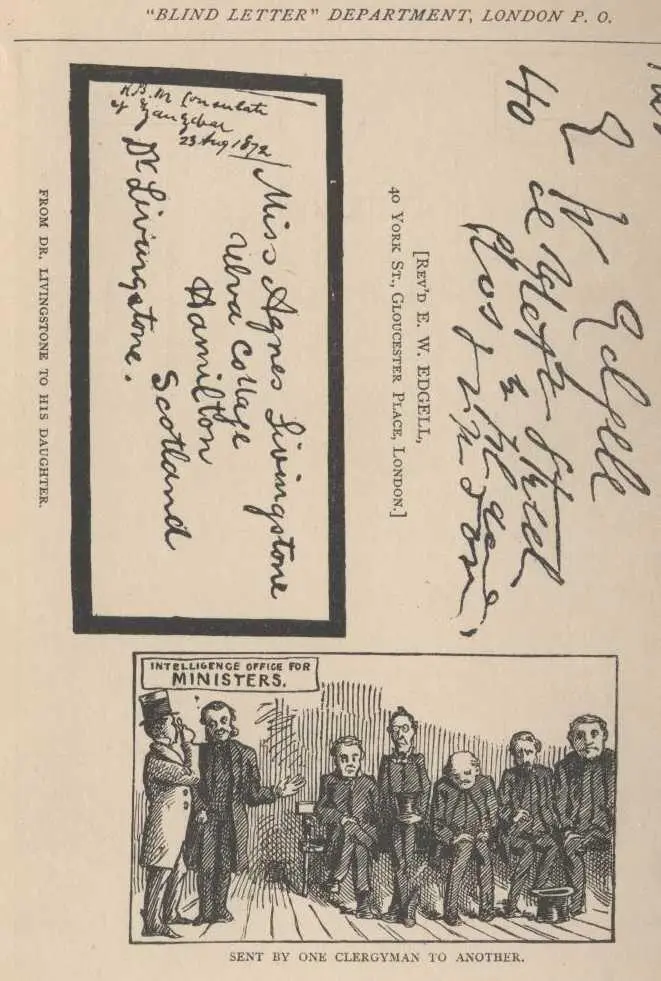 "BLIND LETTER" DEPARTMENT, LONDON P. O.
H.B.M Consulate
Zanzibar
23 Aug 1872
Miss Agnes Livingstone
Ulva Cottage
Hamilton
Scotland
Dr Livingstone.
FROM DR. LIVINGSTONE TO HIS DAUGHTER.
E W Edgell
40
[REV'D E. W. EDGELL,
40 YORK ST., GLOUCESTER PLACE, LONDON.]
INTELLIGENCE OFFICE FOR
MINISTERS.
SENT BY ONE CLERGYMAN TO ANOTHER.